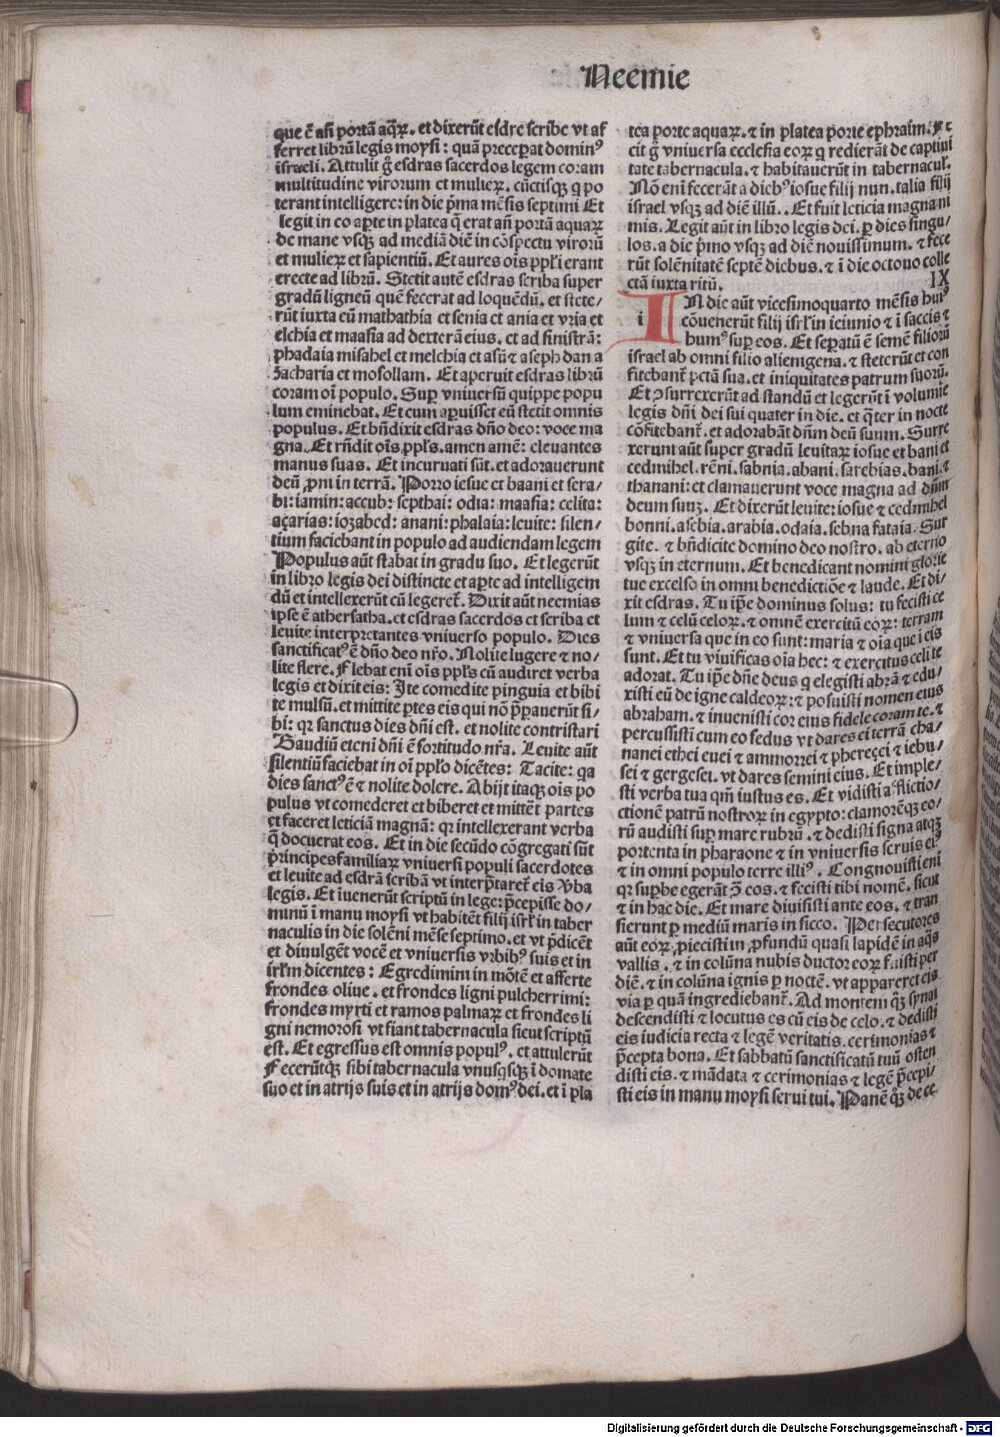 Neemie
que ē añ portā aq̄ꝝ. et dixerūt esdre scribe vt af
ferret librū legis moysi : quā preceperat dominꝰ
israeli. Attulit g̊ esdras sacerdos legem coram
multitudine virorum et mulieꝝ. cūctisqꝫ q po
terant intelligere: in die p̄ma mēsis septimi Et
legit in eo aꝑte in platea q̄ erat añ portā aquaꝝ
de mane vsqꝫ ad mediā diē in cōspectu virorū
et mulieꝝ et sapientiū. Et aures oīs ppl̄i erant
erecte ad librū. Stetit autē esdras scriba super
gradū ligneū quē fecerat ad loquēdū. et stete/
rūt iuxta eū mathathia et senia et ania et vria et
elchia et maasia ad dexterā eius. et ad sinistrā:
phadaia misahel et melchia et asū et aseph dan a
zacharia et mosollam. Et aperuit esdras librū
coram oī populo. Suꝑ vniuersū quippe popu
lum eminebat. Et cum aꝑuisset eū stetit omnis
populus. Et bn̄dixit esdras dn̄o deo: voce ma
gna. Et rn̄dit oīs ppl̄s. amen amē: eleuantes
manus suas. Et incuruati sūt. et adorauerunt
deū ꝓni in terrā. Porro iesue et baani et sera/
bi: iamin: accub: septhai: odia: maasia: celita:
açarias: iozabed: anani: phalaia: leuite: silen/
tium faciebant in populo ad audiendam legem
Populus aūt stabat in gradu suo. Et legerūt
in libro legis dei distincte et aꝑte ad intelligem
dū et intellexerūt cū legereť. Dixit aūt neemias
ipse ē athersatha. et esdras sacerdos et scriba et
leuite interpretantes vniuerso populo. Dies
sanctificatꝰ ē dn̄o deo nr̄o. Nolite lugere ⁊ no/
lite flere. Flebat enī oīs ppl̄s cū audiret verba
legis et dixit eis: Ite comedite pinguia et bibi
te mulsū. et mittite ꝑtes eis qui nō p̄ꝑauerūt si/
bi: qr sanctus dies dn̄i est. et nolite contristari
Gaudiū eteni dn̄i ē fortitudo nr̄a. Leuite aūt
silentiū faciebat in oī ppl̄o dicētes: Tacite: qa
dies sanctꝰ ē ⁊ nolite dolere. Abijt itaqꝫ oīs po
pulus vt comederet et biberet et mitteť partes
et faceret leticiā magnā: qr intellexerant verba
q̄ docuerat eos. Et in die secūdo cōgregati sūt
principes familiaꝝ vniuersi populi sacerdotes
et leuite ad esdrā scribā vt interp̄tareť eis v̾ba
legis. Et īuenerūt scriptū in lege: p̄cepisse do/
minū ī manu moysi vt habitēt filij isrl̄ in taber
naculis in die solēni mēse septimo. et vt p̄dicēt
et diuulgēt vocē et vniuersis vrbibꝰ suis et in
irl̄m dicentes : Egredimini in mōtē et afferte
frondes oliue. et frondes ligni pulcherrimi:
frondes myrti et ramos palmaꝝ et frondes li
gni nemorosi vt fiant tabernacula sicut scriptū
est. Et egressus est omnis populꝰ. et attulerūt
Fecerūtqꝫ sibi tabernacula vnusqsqꝫ ī domate
suo et in atrijs suis et in atrijs domꝰ dei. et ī pla
tea porte aquaꝝ. ⁊ in platea porte ephraim. ⁊
cit g̊ vniuersa ecclesia eoꝝ q redierāt de captiui
tate tabernacula. ⁊ habitauerūt in tabernacul̄.
Nō enī fecerāt a diebꝰ iosue filij nun. talia filij
israel vsqꝫ ad diē illū.. Et fuit leticia magna ni
mis. Legit aūt in libro legis dei. ꝑ dies singu/
los. a die p̄mo vsqꝫ ad diē nouissimum. ⁊ fece
rūt solēnitatē septē diebus. ⁊ ī die octouo colle
ctā iuxta ritū. IX
i IN die aūt vicesimoquarto mēsis huiꝰ
cōuenerūt filij isrl̄ in ieiunio ⁊ ī saccis ⁊
humꝰ suꝑ eos. Et sepatū ē semē filiorū
israel ab omni filio alienigena. ⁊ steterūt et con
fitebanť pctā sua. et iniquitates patrum suorū.
Et ꝯsurrexerūt ad standū et legerūt ī volumie
legis dn̄i dei sui quater in die. et qter in nocte
cōfitebanť. et adorabāt dn̄m deū suum. Surre
xerunt aūt super gradū leuitaꝝ iosue et bani et
cedmihel. rēni. sabnia. abani. sarebias. bani. ⁊
thanani: et clamauerunt voce magna ad dn̄m
deum suuꝫ. Et dixerūt leuite: iosue ⁊ cedmihel
bonni. asebia. arabia. odaia. sebna fataia. Sur
gite. ⁊ bn̄dicite domino deo nostro. ab eterno
vsqꝫ in eternum. Et benedicant nomini glorie
tue excelso in omni benedictiōe ⁊ laude. Et di/
xit esdras. Tu ip̄e dominus solus: tu fecisti ce
lum ⁊ celū celoꝝ. ⁊ omnē exercitū eoꝝ: terram
⁊ vniuersa que in eo sunt: maria ⁊ oīa que ī eis
sunt. Et tu viuificas oīa hec: ⁊ exercitus celi te
adorat. Tu ip̄e dn̄e deus q elegisti abrā ⁊ edu/
xisti eū de igne caldeoꝝ: ⁊ posuisti nomen eius
abraham. ⁊ inuenisti cor eius fidele coram te. ⁊
percussisti cum eo fedus vt dares ei terrā cha/
nanei ethei euei ⁊ ammorrei ⁊ phereçei ⁊ iebu/
sei ⁊ gergesei. vt dares semini eius. Et imple/
sti verba tua qm̄ iustus es. Et vidisti aflictio/
ctionē patrū nostroꝝ in egypto: clamorēqꝫ eo/
rū audisti suꝑ mare rubrū. ⁊ dedisti signa atqꝫ
portenta in pharaone ⁊ in vniuersis seruis eiꝰ
⁊ in omni populo terre illiꝰ. Congnouisti enī
qr suꝑbe egerāt ꝯ̄ eos. ⁊ fecisti tibi nomē. sicut
⁊ in hac die. Et mare diuisisti ante eos. ⁊ tran
sierunt ꝑ mediū maris in sicco. Persecutores
aūt eoꝝ ꝓiecisti in ꝓfundū quasi lapidē in aq̄s
vallis. ⁊ in colūna nubis ductor eoꝝ fuisti per
diē. ⁊ in colūna ignis ꝑ noctē. vt appareret eis
via ꝑ quā ingrediebanť. Ad montem qꝫ synai
descendisti ⁊ locutus es cū eis de celo. ⁊ dedisti
eis iudicia recta ⁊ legē veritatis. cerimonias ⁊
p̄cepta bona. Et sabbatū sanctificatū tuū osten
disti eis. ⁊ mādata ⁊ cerimonias ⁊ legē p̄cepi/
sti eis in manu moysi serui tui. Panē qꝫ de ce
Digitalisierung gefördert durch die Deutsche Forschungsgemeinschaft - DFG